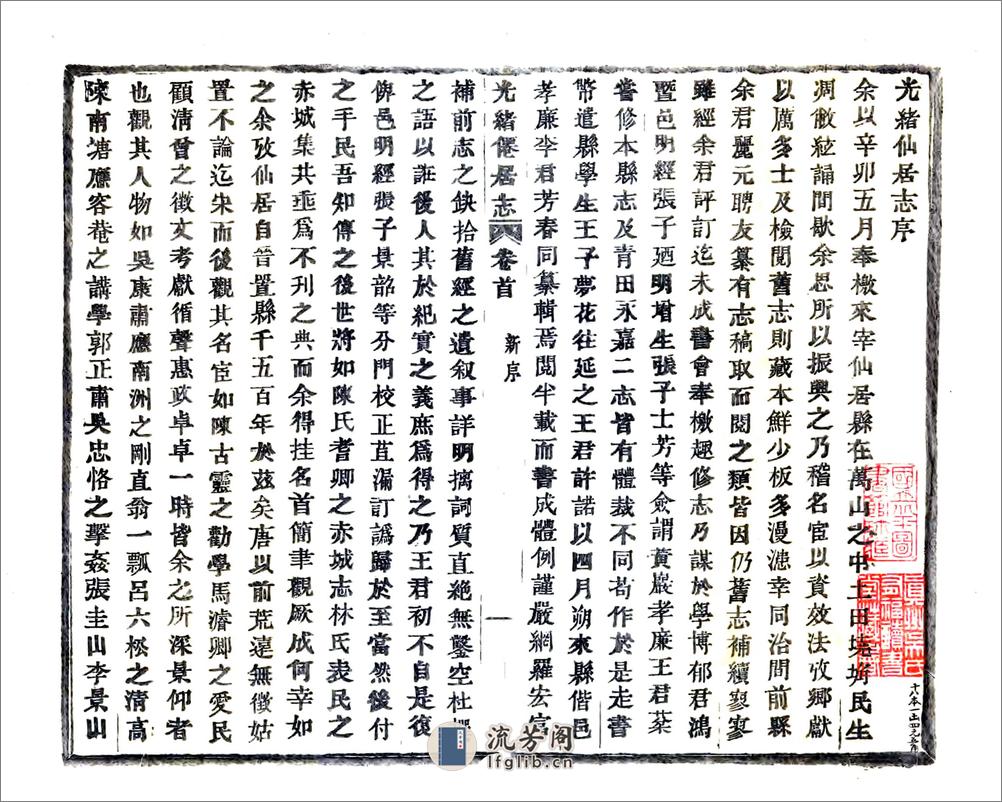 光緒仙居志序
余以辛卯五月奉檄來宰仙居縣在萬山之中土田墝埆民生
凋敝絃誦間歇余思所以振興之乃稽名宦以資效法攷鄉獻
以厲多士及檢閱舊志則藏本鮮少板多漫漶幸同治間前縣
余君麗元聘友纂有志稿取而閱之類皆因仍舊志補續寥寥
雖經余君評訂迄未成書會奉檄趣修志乃謀於學博郁君鴻
暨邑明經張子廼明增生張子士芳等僉謂黃巖孝廉王君棻
嘗修本縣志及青田永嘉二志皆有體裁不同苟作於是走書
幣遣縣學生王子夢花往延之王君許諾以四月朔來縣偕邑
孝廉李君芳春同纂輯焉閱半載而書成體例謹嚴網羅宏富
光緒僊居志 卷首 新序 一
補前志之缺拾舊經之遺叙事詳明摛詞質直絶無鑿空杜撰
之語以誑後人其於紀實之義庶爲得之乃王君初不自是復
俾邑明經張子景韶等分門校正苴漏訂譌歸於至當然後付
之手民吾知傳之後世將如陳氏耆卿之赤城志林氏表民之
赤城集共垂爲不刊之典而余得挂名首簡聿觀厥成何幸如
之余攷仙居自晉置縣千五百年於茲矣唐以前荒遠無徵姑
置不論迄宋而後觀其名宦如陳古靈之勸學馬濟卿之愛民
顧清曾之徵文考獻循聲惠政卓卓一時皆余之所深景仰者
也觀其人物如吳康肅應南洲之剛直翁一瓢呂六松之清高
陳南塘應容菴之講學郭正肅吳忠恪之擊姦張圭山李景山
流芳阁
lfglib.cn